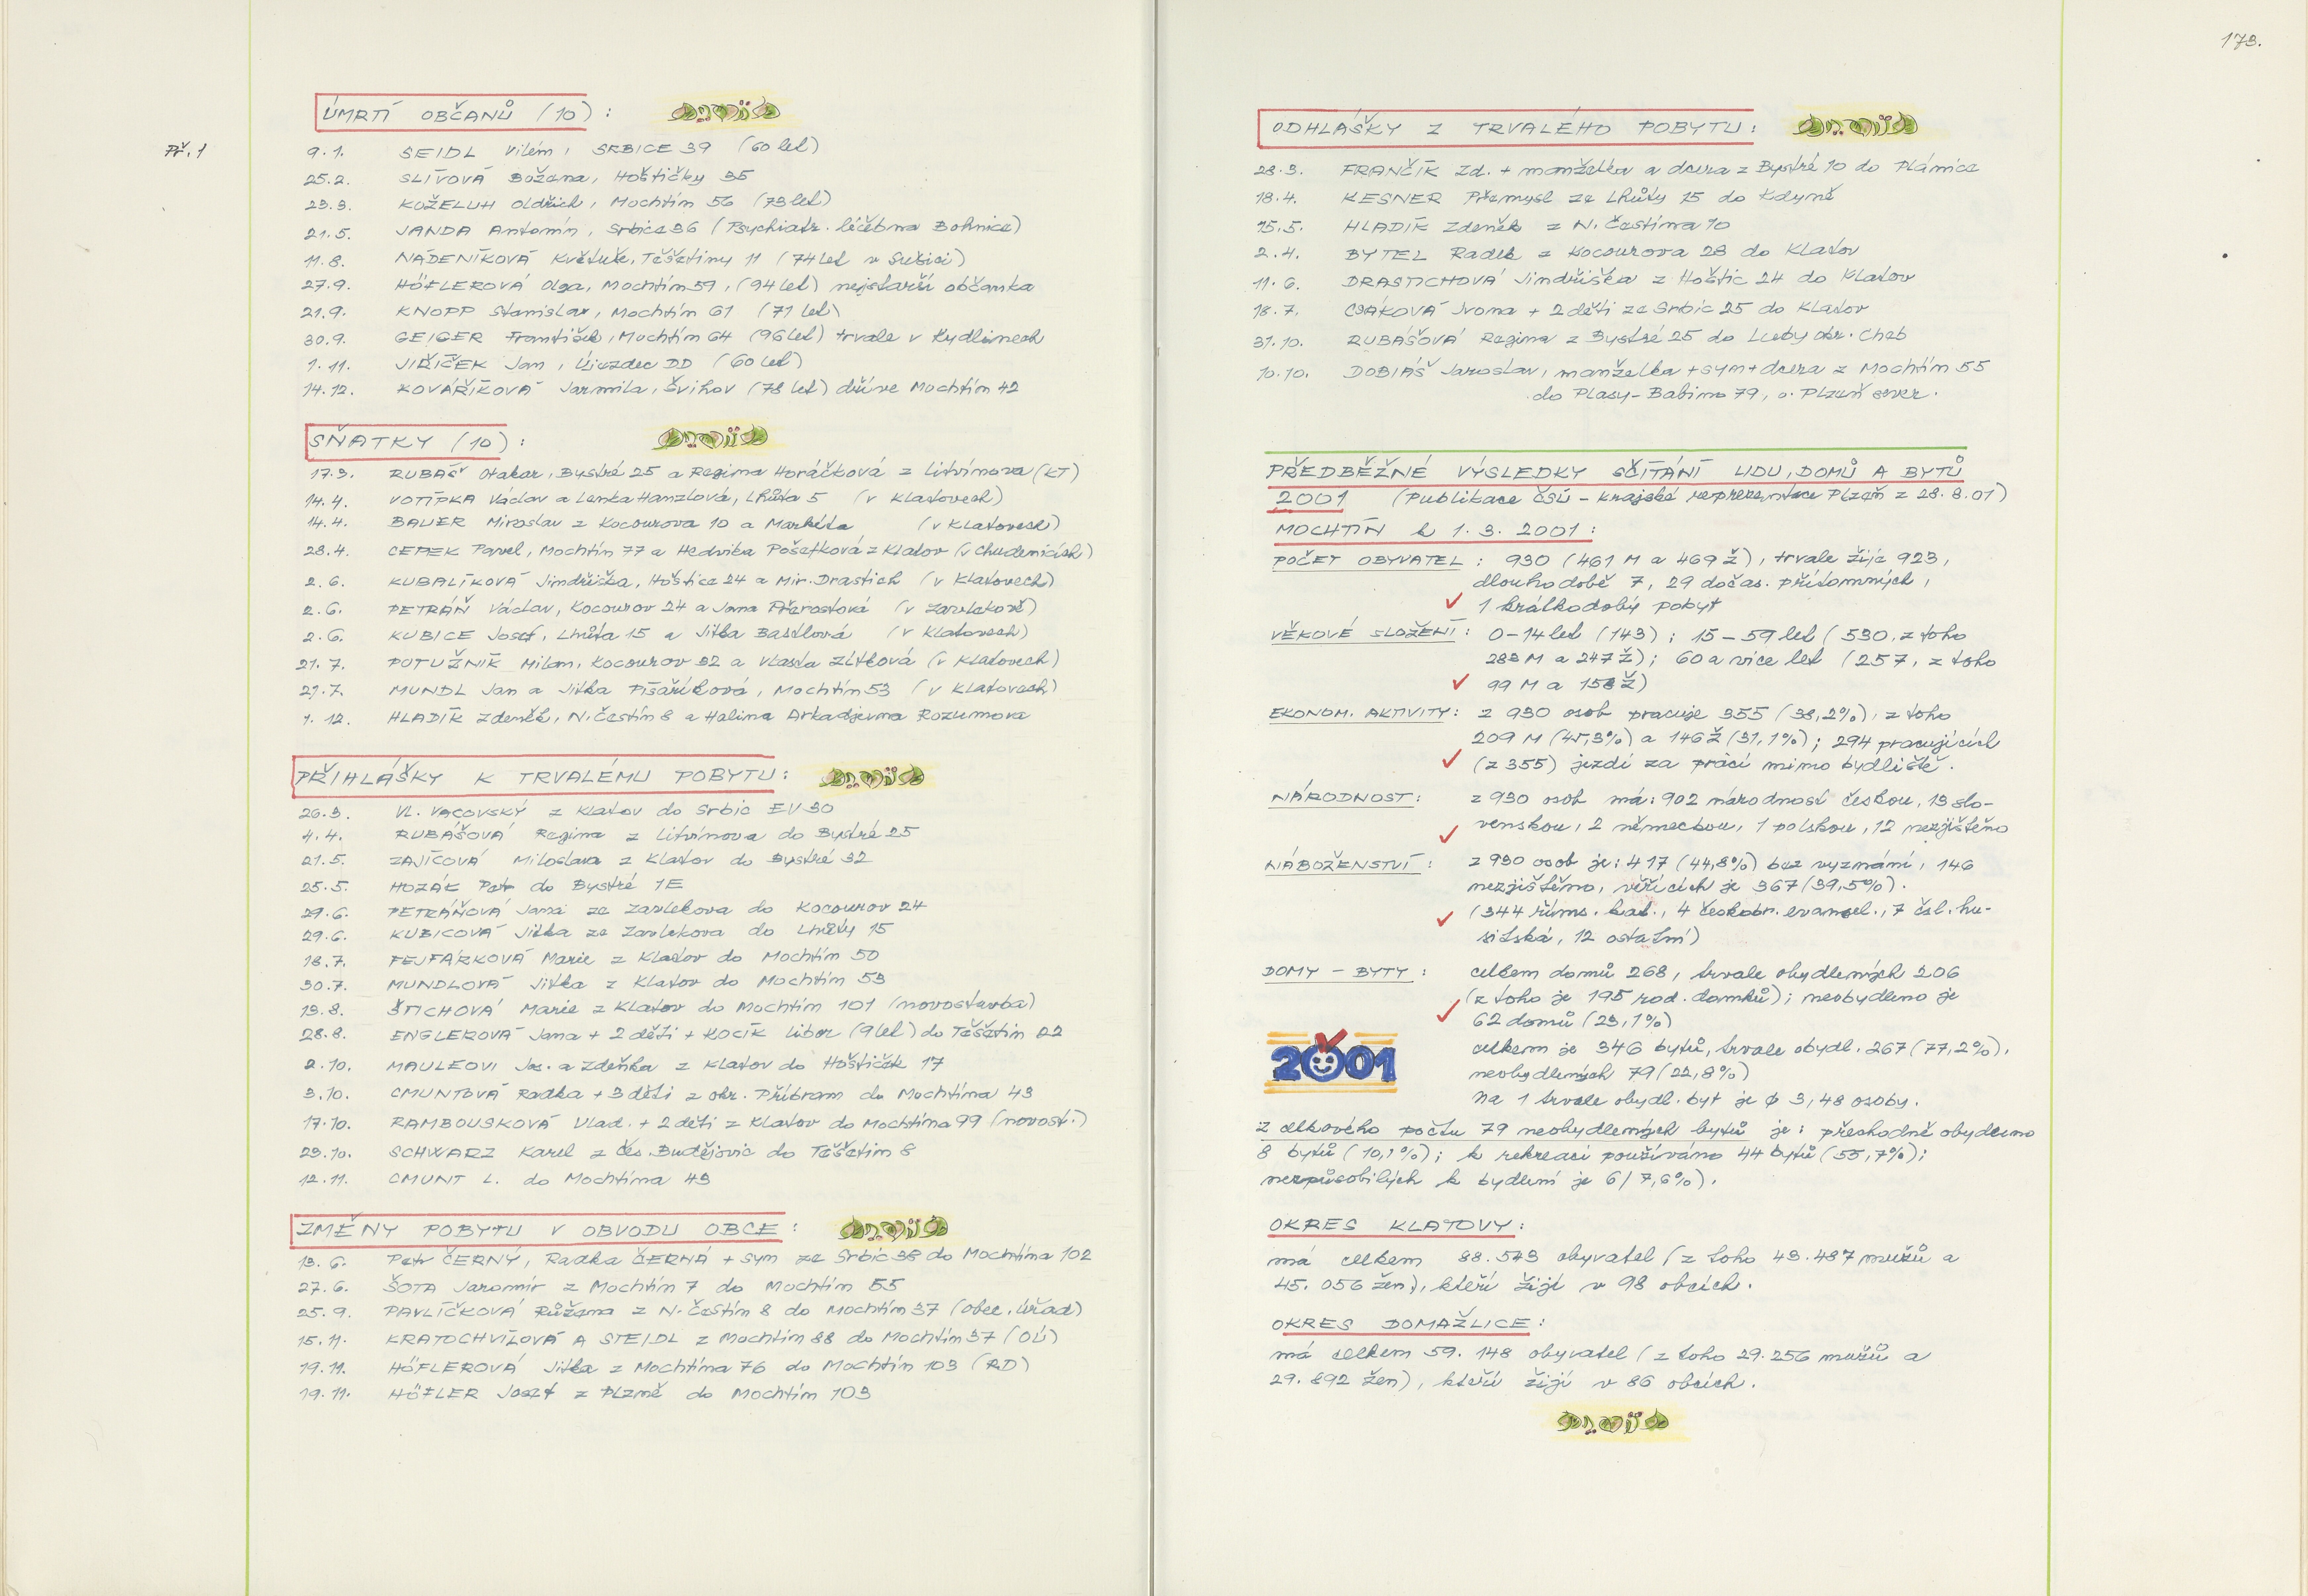 Př. 1
ÚMRTÍ OBČANŮ (10) :
9.1. SEIDL Vilém, SRBICE 39 (60 let)
25.2. SLÍVOVÁ Božena, Hoštičky 35
23.3. KOŽELUH Oldřich, Mochtín 56 (73 let)
21.5. JANDA Antonín, Srbice 36 (Psychiatr. léčebna Bohnice)
11.8. NÁDENÍKOVÁ Květuše, Těšetiny 11 (74 let v Sušici)
27.9. HÖFLEROVÁ Olga, Mochtín 59, (94 let) nejstarší občanka
21.9. KNOPP Stanislav, Mochtín 61 (71 let)
30.9. GEIGER František, Mochtín 64 (96 let) trvale v Kydlinech
1.11. JIŘIČEK Jan, Újezdec DD (60 let)
14.12. KOVÁŘÍKOVÁ Jarmila, Švihov (78 let) dříve Mochtín 42
SŇATKY (10) :
17.3. RUBÁŠ Otakar, Bystré 25 a Regina Horáčková z Litvínova (KT)
14.4. VOTÍPKA Václav a Lenka Hanzlová, Lhůta 5 (v Klatovech)
14.4. BAUER Miroslav z Kocourova 10 a Markéta (v Klatovech)
28.4. CEPEK Pavel, Mochtín 77 a Hedvika Pošetková z Klatov (v Chudenicích)
2.6. KUBALÍKOVÁ Jindřiška, Hoštice 24 a Mir. Drastich (v Klatovech)
2.6. PETRÁŇ Václav, Kocourov 24 a Jana Přerostová (v Zavlekově)
2.6. KUBICE Josef, Lhůta 15 a Jitka Bastlová (v Klatovech)
21.7. POTUŽNÍK Milan, Kocourov 32 a Vlasta Zítková (v Klatovech)
21.7. MUNDL Jan a Jitka Písaříková, Mochtín 53 (v Klatovech)
1.12. HLADÍK Zdeněk, N. Čestín 8 a Halina Arkadjevna Rozumova
PŘIHLÁŠKY K TRVALÉMU POBYTU :
26.3. Vl. VACOVSKÝ z Klatov do Srbic EV 30
4.4. RUBÁŠOVÁ Regina z Litvínova do Bystré 25
21.5. ZAJÍCOVÁ Miloslava z Klatov do Bystré 32
25.5. HOZÁK Petr do Bystré 1E
29.6. PETRÁŇOVÁ Jana ze Zavlekova do Kocourov 24
29.6. KUBICOVÁ Jitka ze Zavlekova do Lhůty 15
18.7. FEJFÁRKOVÁ Marie z Klatov do Mochtín 50
30.7. MUNDLOVÁ Jitka z Klatov do Mochtín 53
13.8. ŠTICHOVÁ Marie z Klatov do Mochtín 101 (novostavba)
28.8. ENGLEROVÁ Jana + 2 děti + KOCÍK Libor (9 let) do Těšetin 22
2.10. MAULEOVI Jos. a Zdeňka z Klatov do Hoštiček 17
3.10. CMUNTOVÁ Radka + 3 děti z okr. Příbram do Mochtína 43
17.10. RAMBOUSKOVÁ Vlad. + 2 děti z Klatov do Mochtína 99 (novost.)
23.10. SCHWARZ Karel z Čes. Budějovic do Těšetin 8
12.11. CMUNT L. do Mochtína 43
ZMĚNY POBYTU V OBVODU OBCE :
13.6. Petr ČERNÝ, Radka ČERNÁ + syn ze Srbic 38 do Mochtína 102
27.6. ŠOTA Jaromír z Mochtín 7 do Mochtín 55
25.9. PAVLÍČKOVÁ Růžena z N. Čestín 8 do Mochtín 37 (obec. úřad)
15.11. KRATOCHVÍLOVÁ A STEIDL z Mochtín 88 do Mochtín 37 (OÚ)
19.11. HÖFLEROVÁ Jitka z Mochtína 76 do Mochtín 103 (RD)
19.11. HÖFLER Josef z Plzně do Mochtín 103
173.
ODHLÁŠKY Z TRVALÉHO POBYTU :
23.3. FRANČÍK Zd. + manželka a dcera z Bystré 10 do Plánice
18.4. KESNER Přemysl ze Lhůty 15 do Kdyně
15.5. HLADÍK Zdeněk z N. Čestína 10
2.4. BYTEL Radek z Kocourova 28 do Klatov
11.6. DRASTICHOVÁ Jindřiška z Hoštic 24 do Klatov
18.7. CSÁKOVÁ Ivona + 2 děti ze Srbic 25 do Klatov
31.10. RUBÁŠOVÁ Regina z Bystré 25 do Luby okr. Cheb
10.10. DOBIÁŠ Jaroslav, manželka + syn + dcera z Mochtín 55
do Plasy - Babina 79, o. Plzeň sever.
PŘEDBĚŽNÉ VÝSLEDKY SČÍTÁNÍ LIDU, DOMŮ A BYTŮ
2001 (Publikace ČSÚ - krajské reprezentace Plzeň z 28.8.01)
MOCHTÍN k 1.3.2001 :
POČET OBYVATEL : 930 (461 M a 469 Ž), trvale žije 923,
dlouhodobě 7, 29 dočas. přítomných,
1 krátkodobý pobyt
VĚKOVÉ SLOŽENÍ : 0-14 let (143) ; 15-59 let (530, z toho
283 M a 247 Ž) ; 60 a více let (257, z toho
99 M a 158 Ž)
EKONOM. AKTIVITY : z 930 osob pracuje 355 (38,2%), z toho
209 M (45,3%) a 146 Ž (31,1%) ; 294 pracujících
(z 355) jezdí za prací mimo bydliště.
NÁRODNOST : z 930 osob má: 902 národnost českou, 13 slo-
venskou, 2 německou, 1 polskou, 12 nezjištěno
NÁBOŽENSTVÍ : z 930 osob je: 417 (44,8%) bez vyznání, 146
nezjištěno, věřících je 367 (39,5%).
(344 říms. kat., 4 českobr. evangel., 7 čsl. hu-
sitská, 12 ostatní)
DOMY - BYTY : celkem domů 268, trvale obydlených 206
(z toho je 195 rod. domků) ; neobydleno je
62 domů (23,1%)
2001
celkem je 346 bytů, trvale obydl. 267 (77,2%),
neobydlených 79 (22,8%)
na 1 trvale obydl. byt je ϕ 3,48 osoby.
Z celkového počtu 79 neobydlených bytů je : přechodně obydleno
8 bytů (10,1%) ; k rekreaci používáno 44 bytů (55,7%) ;
nezpůsobilých k bydlení je 6 / 7,6%).
OKRES KLATOVY :
má celkem 88.543 obyvatel (z toho 43.487 mužů a
45.056 žen), kteří žijí v 98 obcích.
OKRES DOMAŽLICE :
má celkem 59.148 obyvatel (z toho 29.256 mužů a
29.892 žen), kteří žijí v 86 obcích.